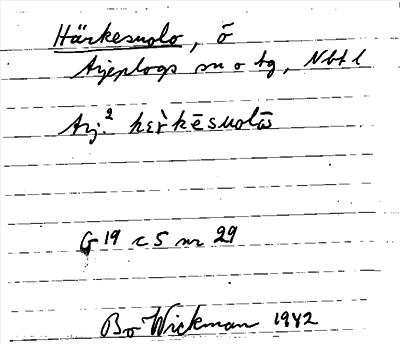 Härkesuolo, ö
Arjeplogs sn o tg, Nbt l
Arj.² hɛr̀kēsuolō̮
G 19 c 5 nr 29
Bo Wickman 1982